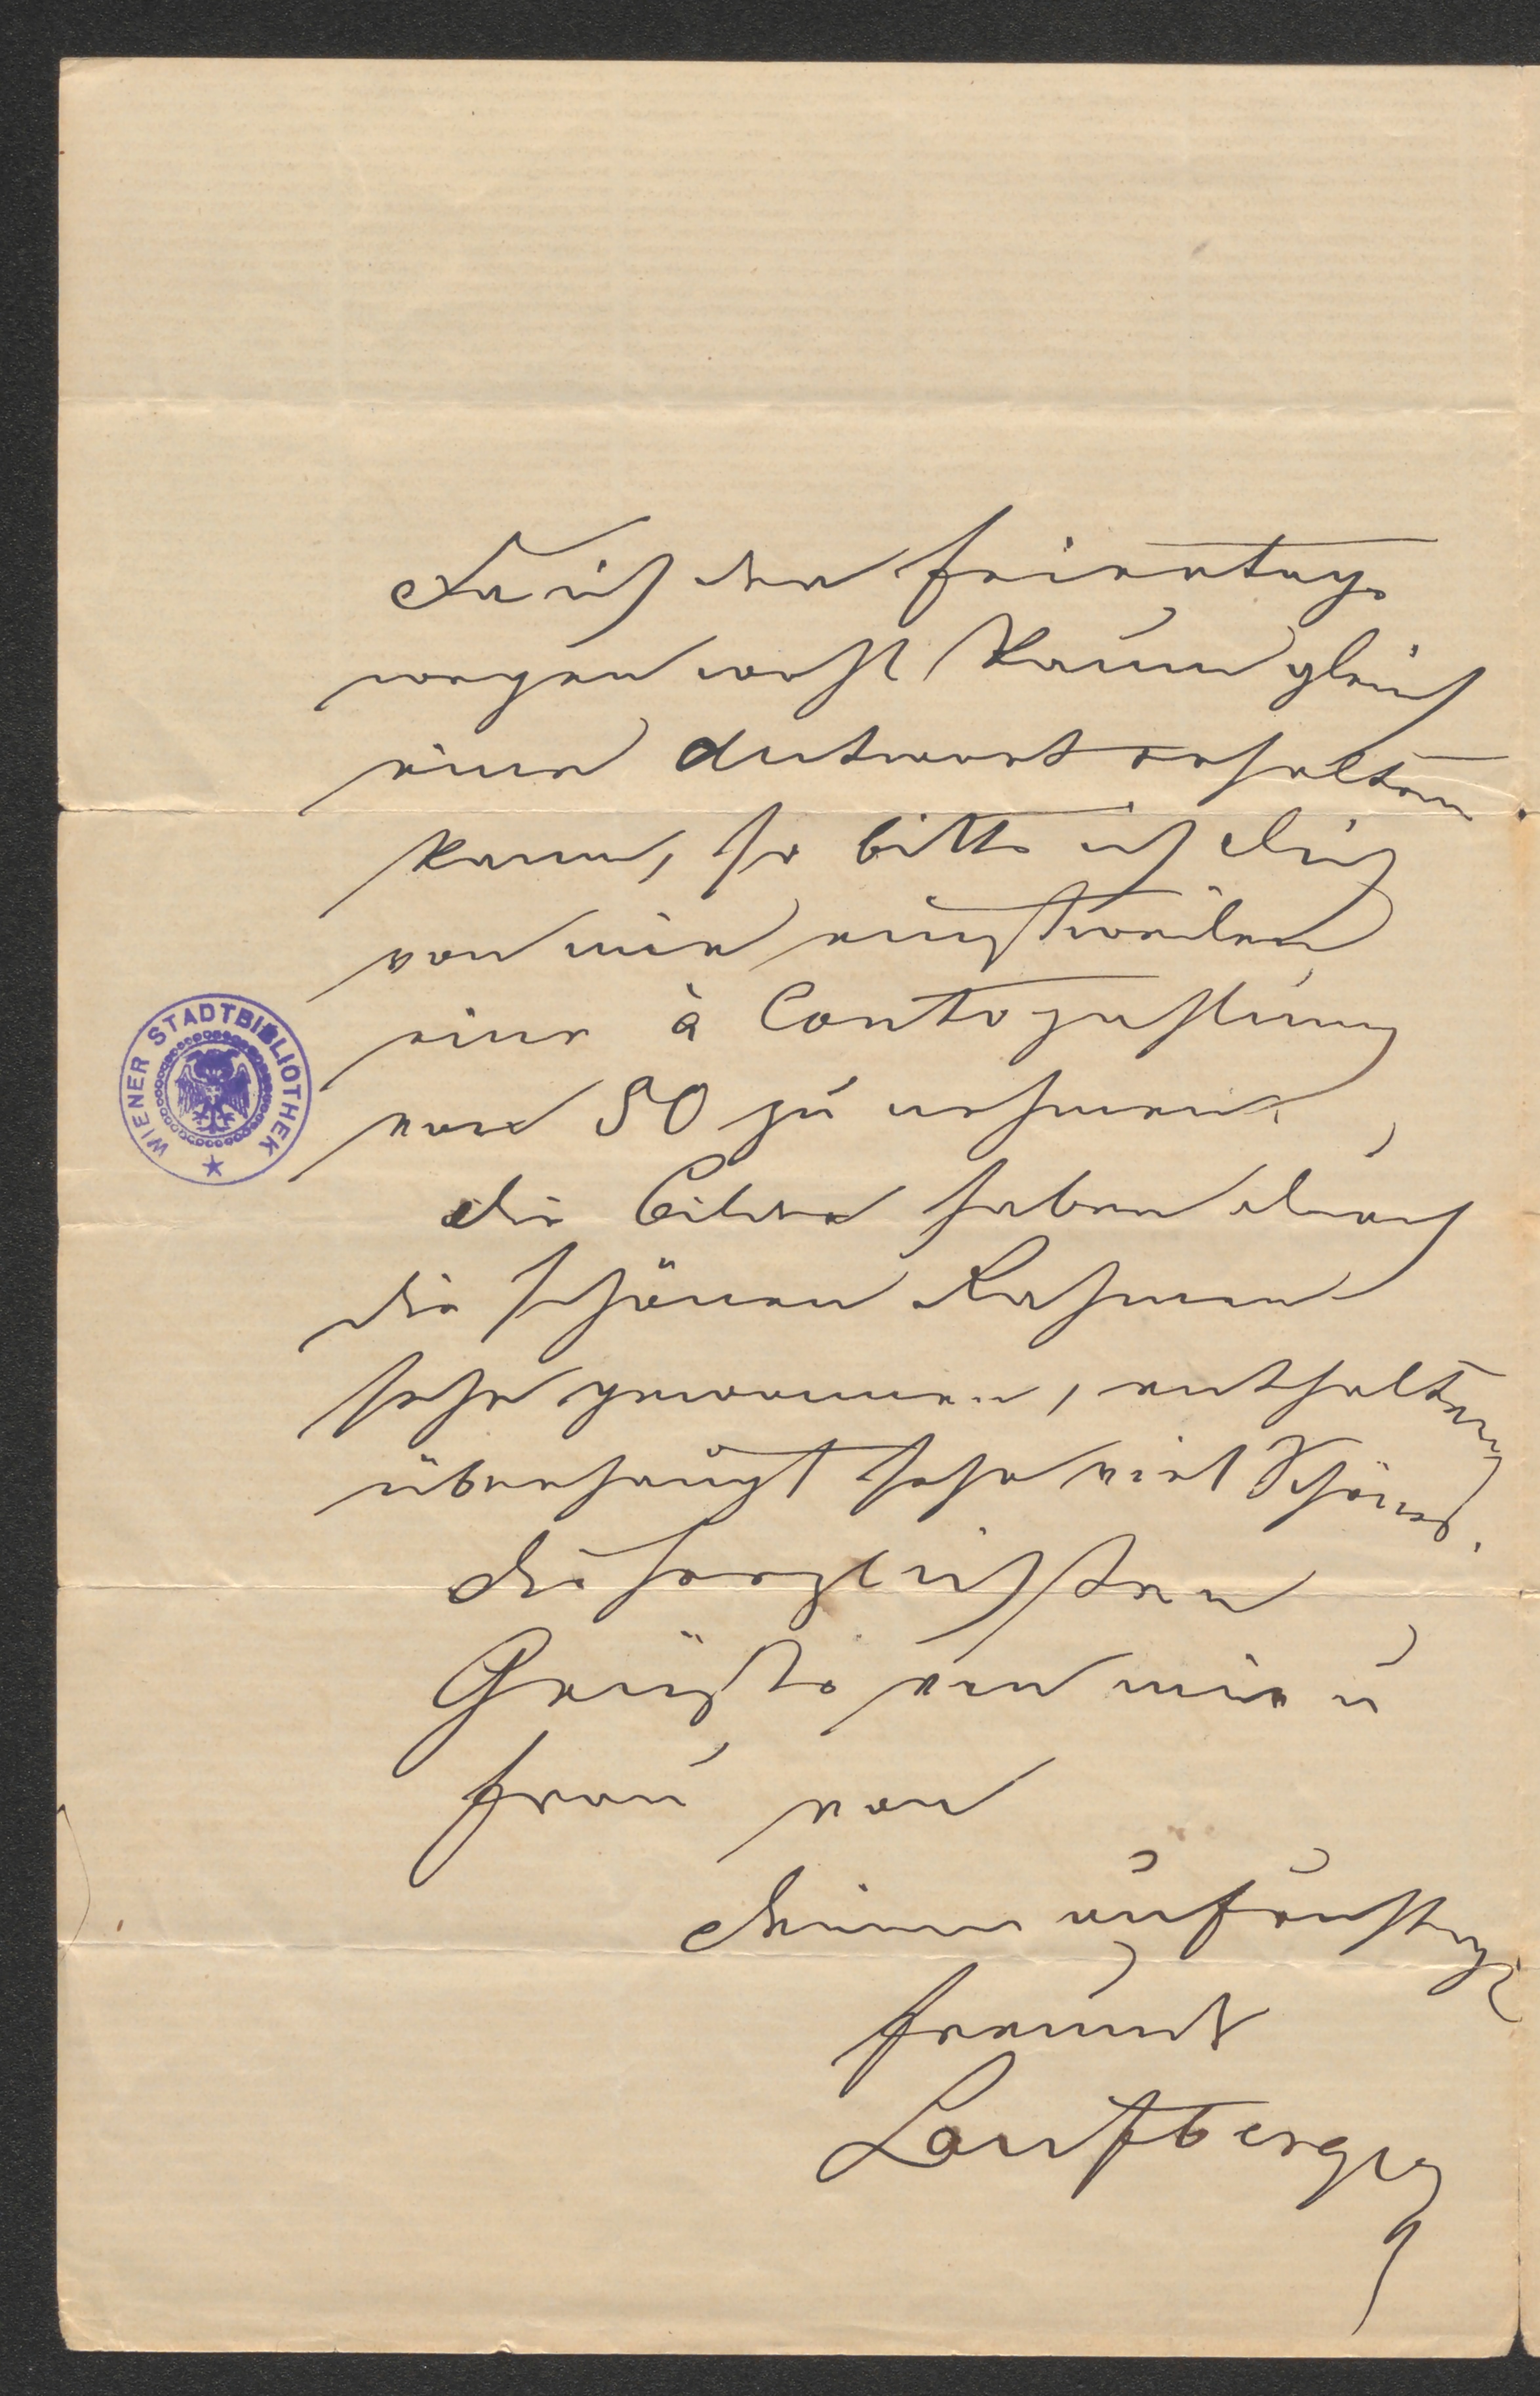 Da ich der Feiertage
wegen wohl kaum gleich
eine Antwort erhalten
kann, so bitte ich Dich
von mir einstweilen
eine à Contozahlung
von 50 zu nehmen.
Die Bilder haben durch
die schönen Rahmen
sehr gewonnen, enthalten
überhaupt sehr viel Schönes.
Die herzlichsten
Grüße von mir u
Frau von
Deinem aufrichtigen
Freund
Laufberger
WIENER STADTBIBLIOTHEK